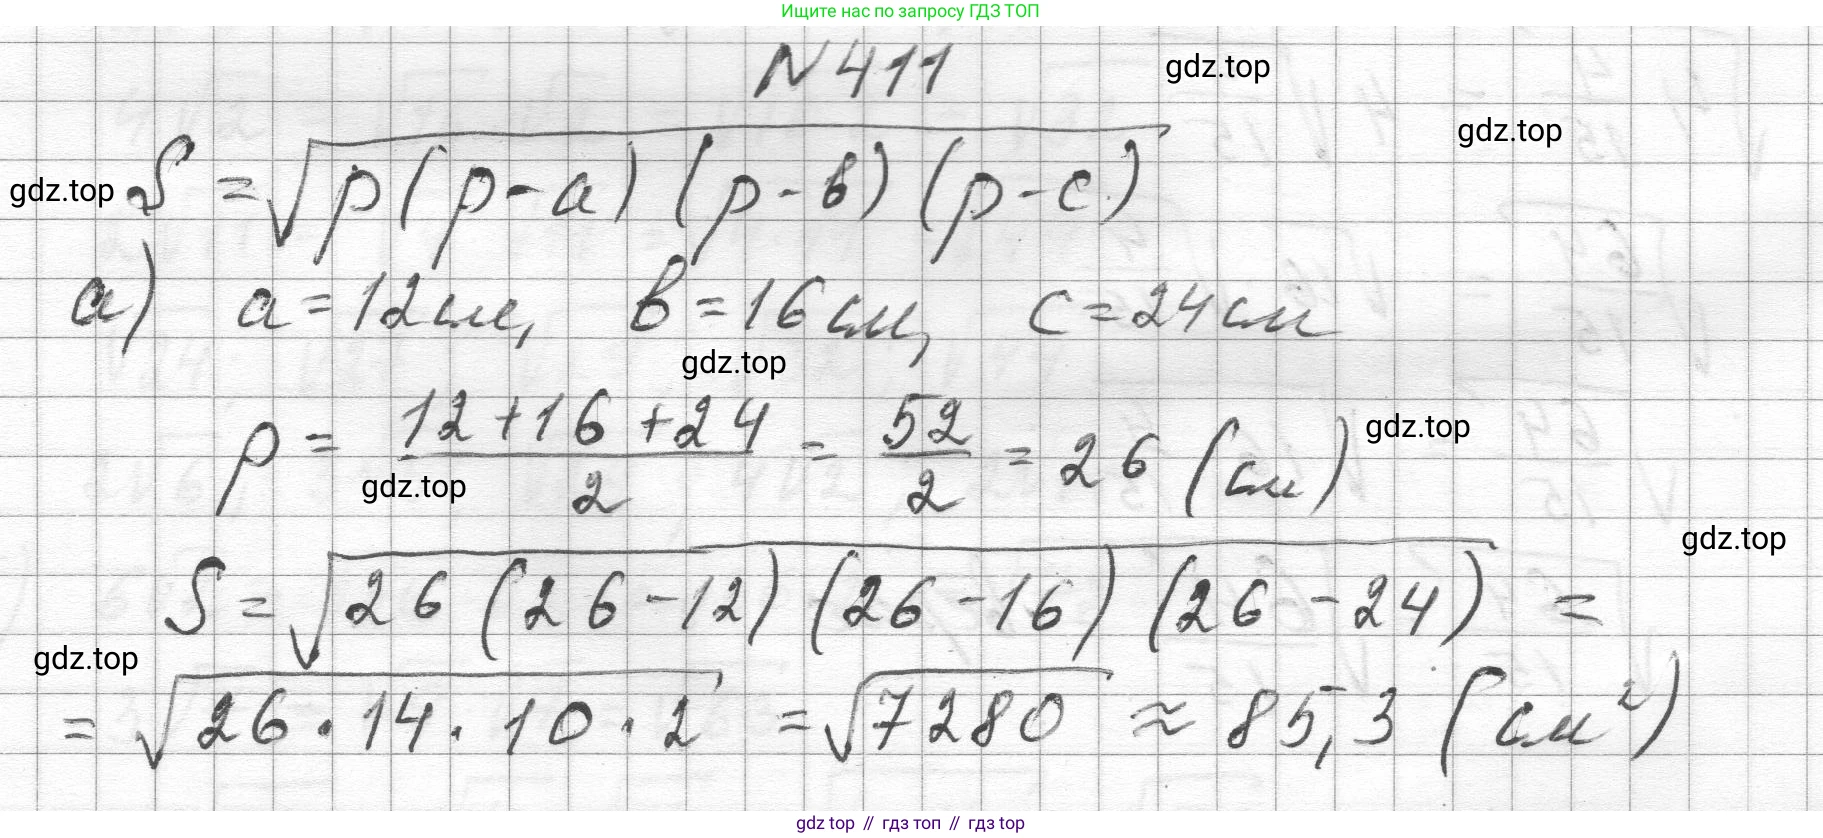 Ищите нас по запросу ГДЗ ТОП
N 411
gdz.top
gdz.top
gdz.top
S = √(p(p-a)(p-в)(p-c))
а) a = 12 см, в = 16 см, c = 24 см
gdz.top
p = (12+16+24)/2 = 52/2 = 26 (см)
gdz.top
gdz.top
gdz.top
S = √(26(26-12)(26-16)(26-24)) =
gdz.top
= √(26·14·10·2) = √7280 ≈ 85,3 (см²)
gdz top // гдз топ // gdz top